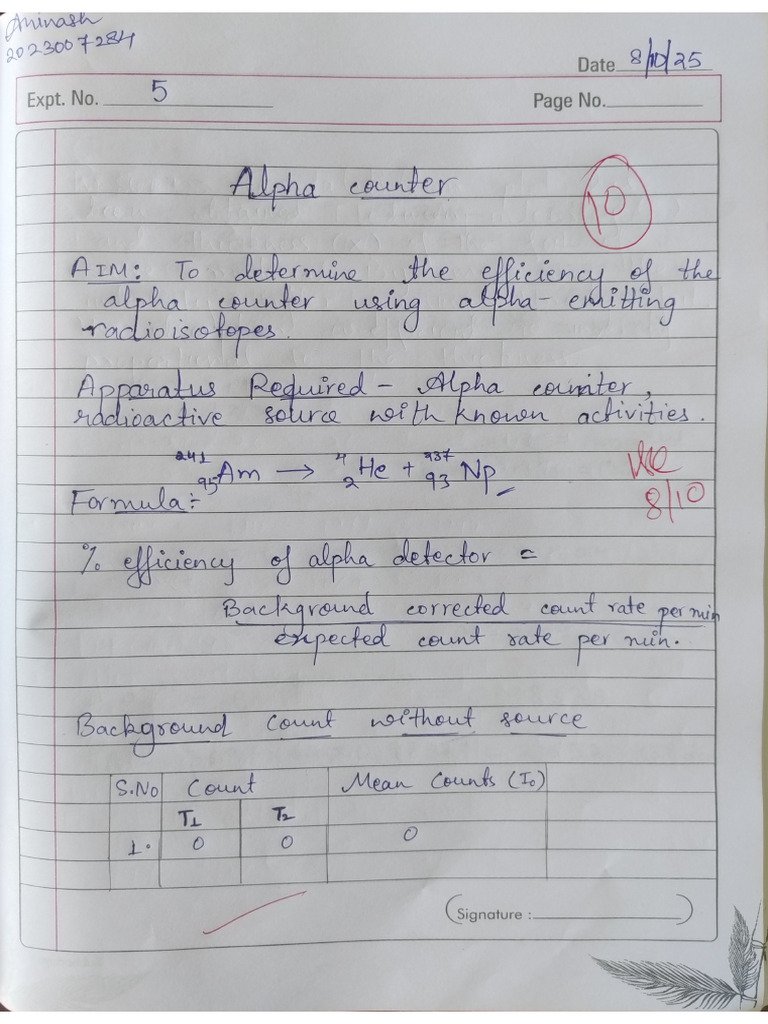 Aninash
2023007284
Date 8/10/25
Expt. No. 5 Page No.
Alpha counter
10
AIM: To determine the efficiency of the
alpha counter using alpha-emitting
radioisotopes.
Apparatus Required - Alpha counter,
radioactive source with known activities.
²⁴¹₉₅Am → ⁴₂He + ²³⁷₉₃Np
8/10
Formula:-
% efficiency of alpha detector =
Background corrected count rate per min
expected count rate per min.
Background count without source
S.No Count Mean Counts (I₀)
T1 T2
1. 0 0 0
Signature :